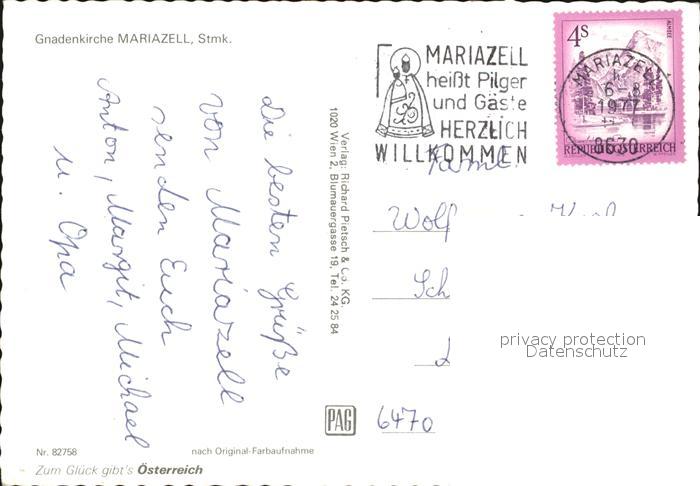 Gnadenkirche MARIAZELL, Stmk.
Die besten Grüße
von Mariazell
senden Euch
Anton, Margit, Michael
u. Opa
Verlag: Richard Pietsch & Co. KG.
1020 Wien 2, Blumauergasse 19, Tel. 24 25 84
PAG
Nr. 82758
nach Original-Farbaufnahme
Zum Glück gibt's Österreich
MARIAZELL
heißt Pilger
und Gäste
HERZLICH
WILLKOMMEN
4S
ALMSEE
REPUBLIK ÖSTERREICH
MARIAZELL
6-8
1977
8630
Famil.
Wolf
Sch
6470
privacy protection
Datenschutz